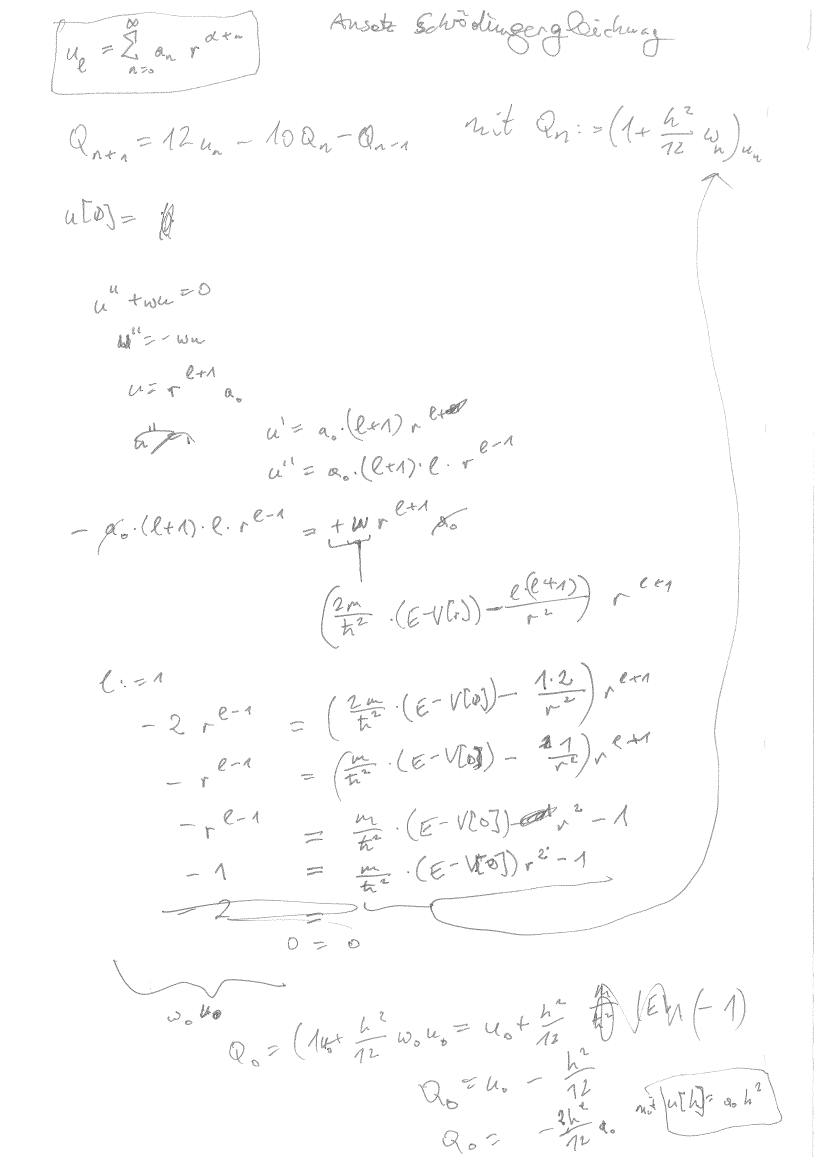 Ansatz Schrödingergleichung
u_l = ∑_{n=0}^{∞} a_n r^{α+n}
Q_{n+1} = 12 u_n - 10 Q_n - Q_{n-1} mit Q_n := (1 + h²/12 w_n) u_n
u[0] = 0
u'' + wu = 0
u'' = -wu
u = r^{l+1} a_0
u' = a_0 · (l+1) r^l
u'' = a_0 · (l+1) · l · r^{l-1}
- a_0 · (l+1) · l · r^{l-1} = + w r^{l+1} a_0
(2m/ħ² · (E-V[r]) - l·(l+1)/r²) r^{l+1}
l := 1
- 2 r^{l-1} = (2m/ħ² · (E-V[0]) - 1·2/r²) r^{l+1}
- r^{l-1} = (m/ħ² · (E-V[0]) - 1/r²) r^{l+1}
- r^{l-1} = m/ħ² · (E-V[0]) r² - 1
- 1 = m/ħ² · (E-V[0]) r² - 1
- 2 =
0 = 0
w_0 u_0
Q_0 = (1u_0 + h²/12 w_0 u_0 = u_0 + h²/12 (-1)
Q_0 = u_0 - h²/12
Q_0 = - 2h²/12 a_0 mit u[h] = a_0 h²